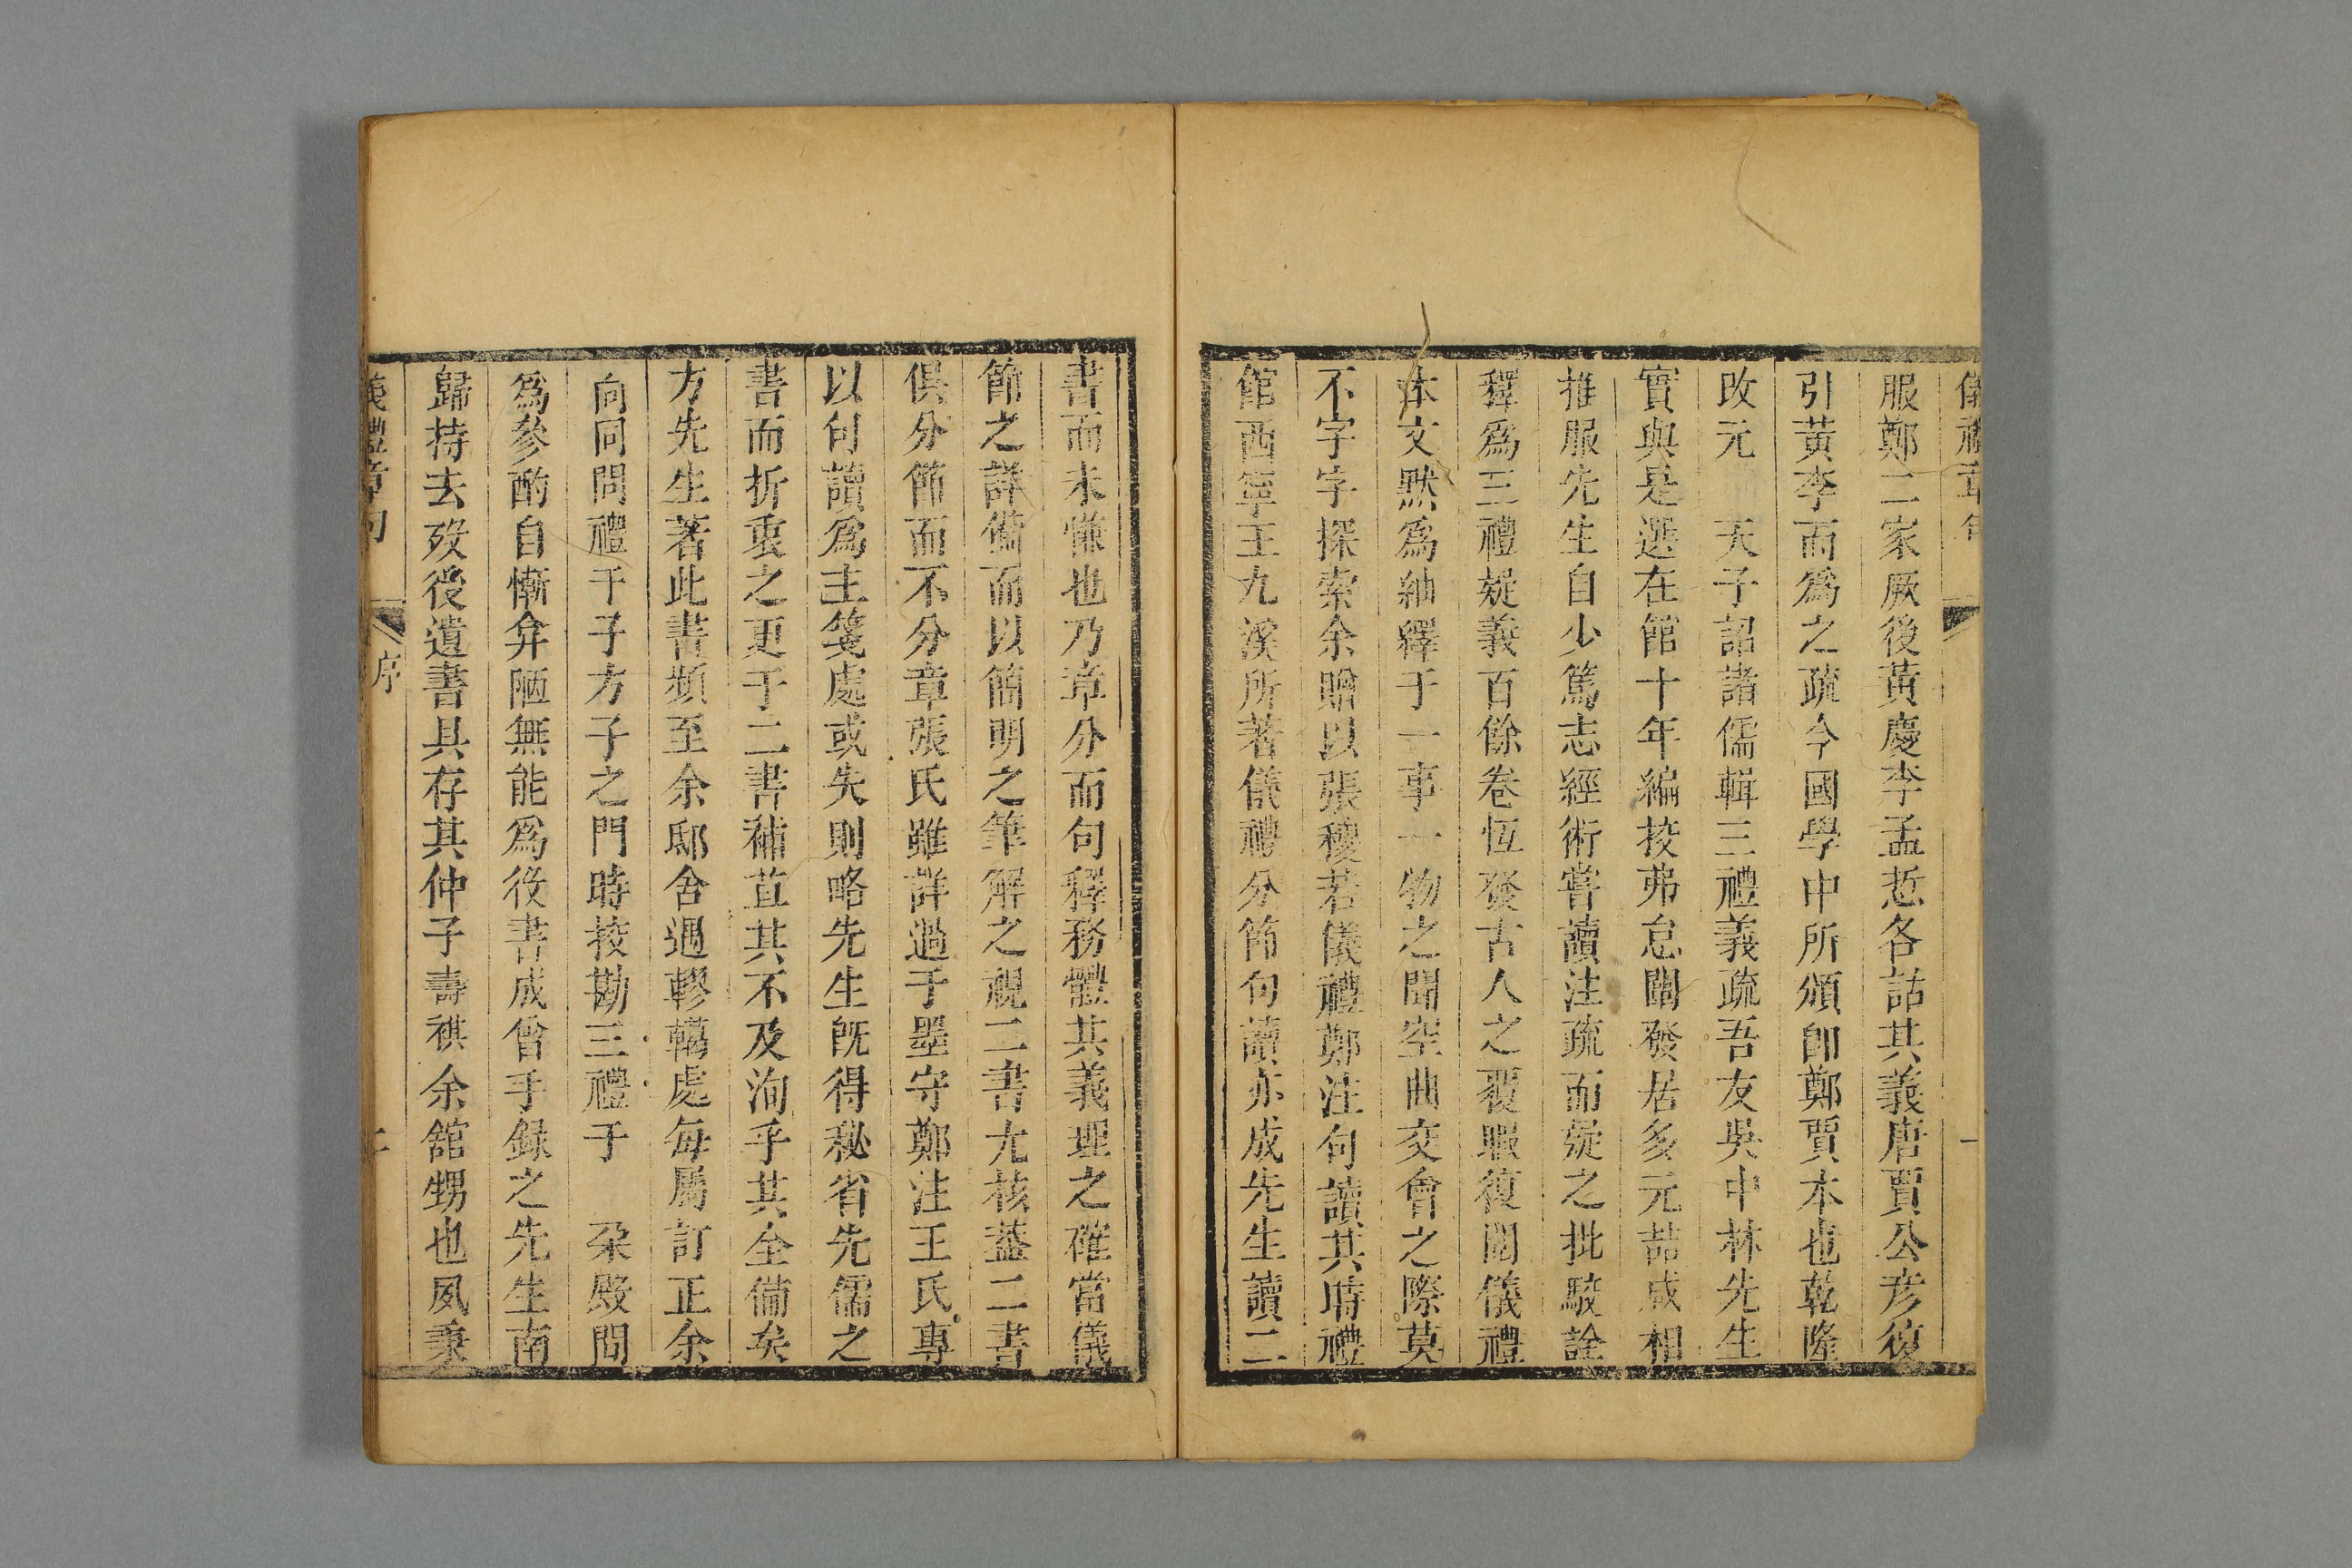 儀禮章句
一
服鄭二家厥後黃慶李孟悊各詁其義唐賈公彦復
引黃李而爲之疏今國學中所頒卽鄭賈本也乾隆
改元　天子詔諸儒輯三禮義疏吾友吳中林先生
實與是選在館十年編挍弗怠闡發居多元喆咸相
推服先生自少篤志經術嘗讀注疏而疑之批駁詮
釋爲三禮疑義百餘卷恆發古人之覆暇復閱儀禮
本文默爲紬繹于一事一物之閒空曲交會之際莫
不字字探索余贈以張稷若儀禮鄭注句讀其時禮
館西寧王九溪所著儀禮分節句讀亦成先生讀二
書而未慊也乃章分而句釋務體其義理之確當儀
節之詳備而以簡明之筆解之視二書尤核葢二書
俱分節而不分章張氏雖詳過于墨守鄭注王氏專
以句讀爲主箋處或失則略先生旣得秘省先儒之
書而折衷之更于二書補苴其不及洵乎其全備矣
方先生著此書頻至余邸舍遇轇轕處每屬訂正余
向同問禮于子方子之門時挍勘三禮于　朶殿間
爲參酌自慚弇陋無能爲役書成曾手録之先生南
歸持去歿後遺書具存其仲子壽祺余舘甥也夙秉
義禮章句
序
二